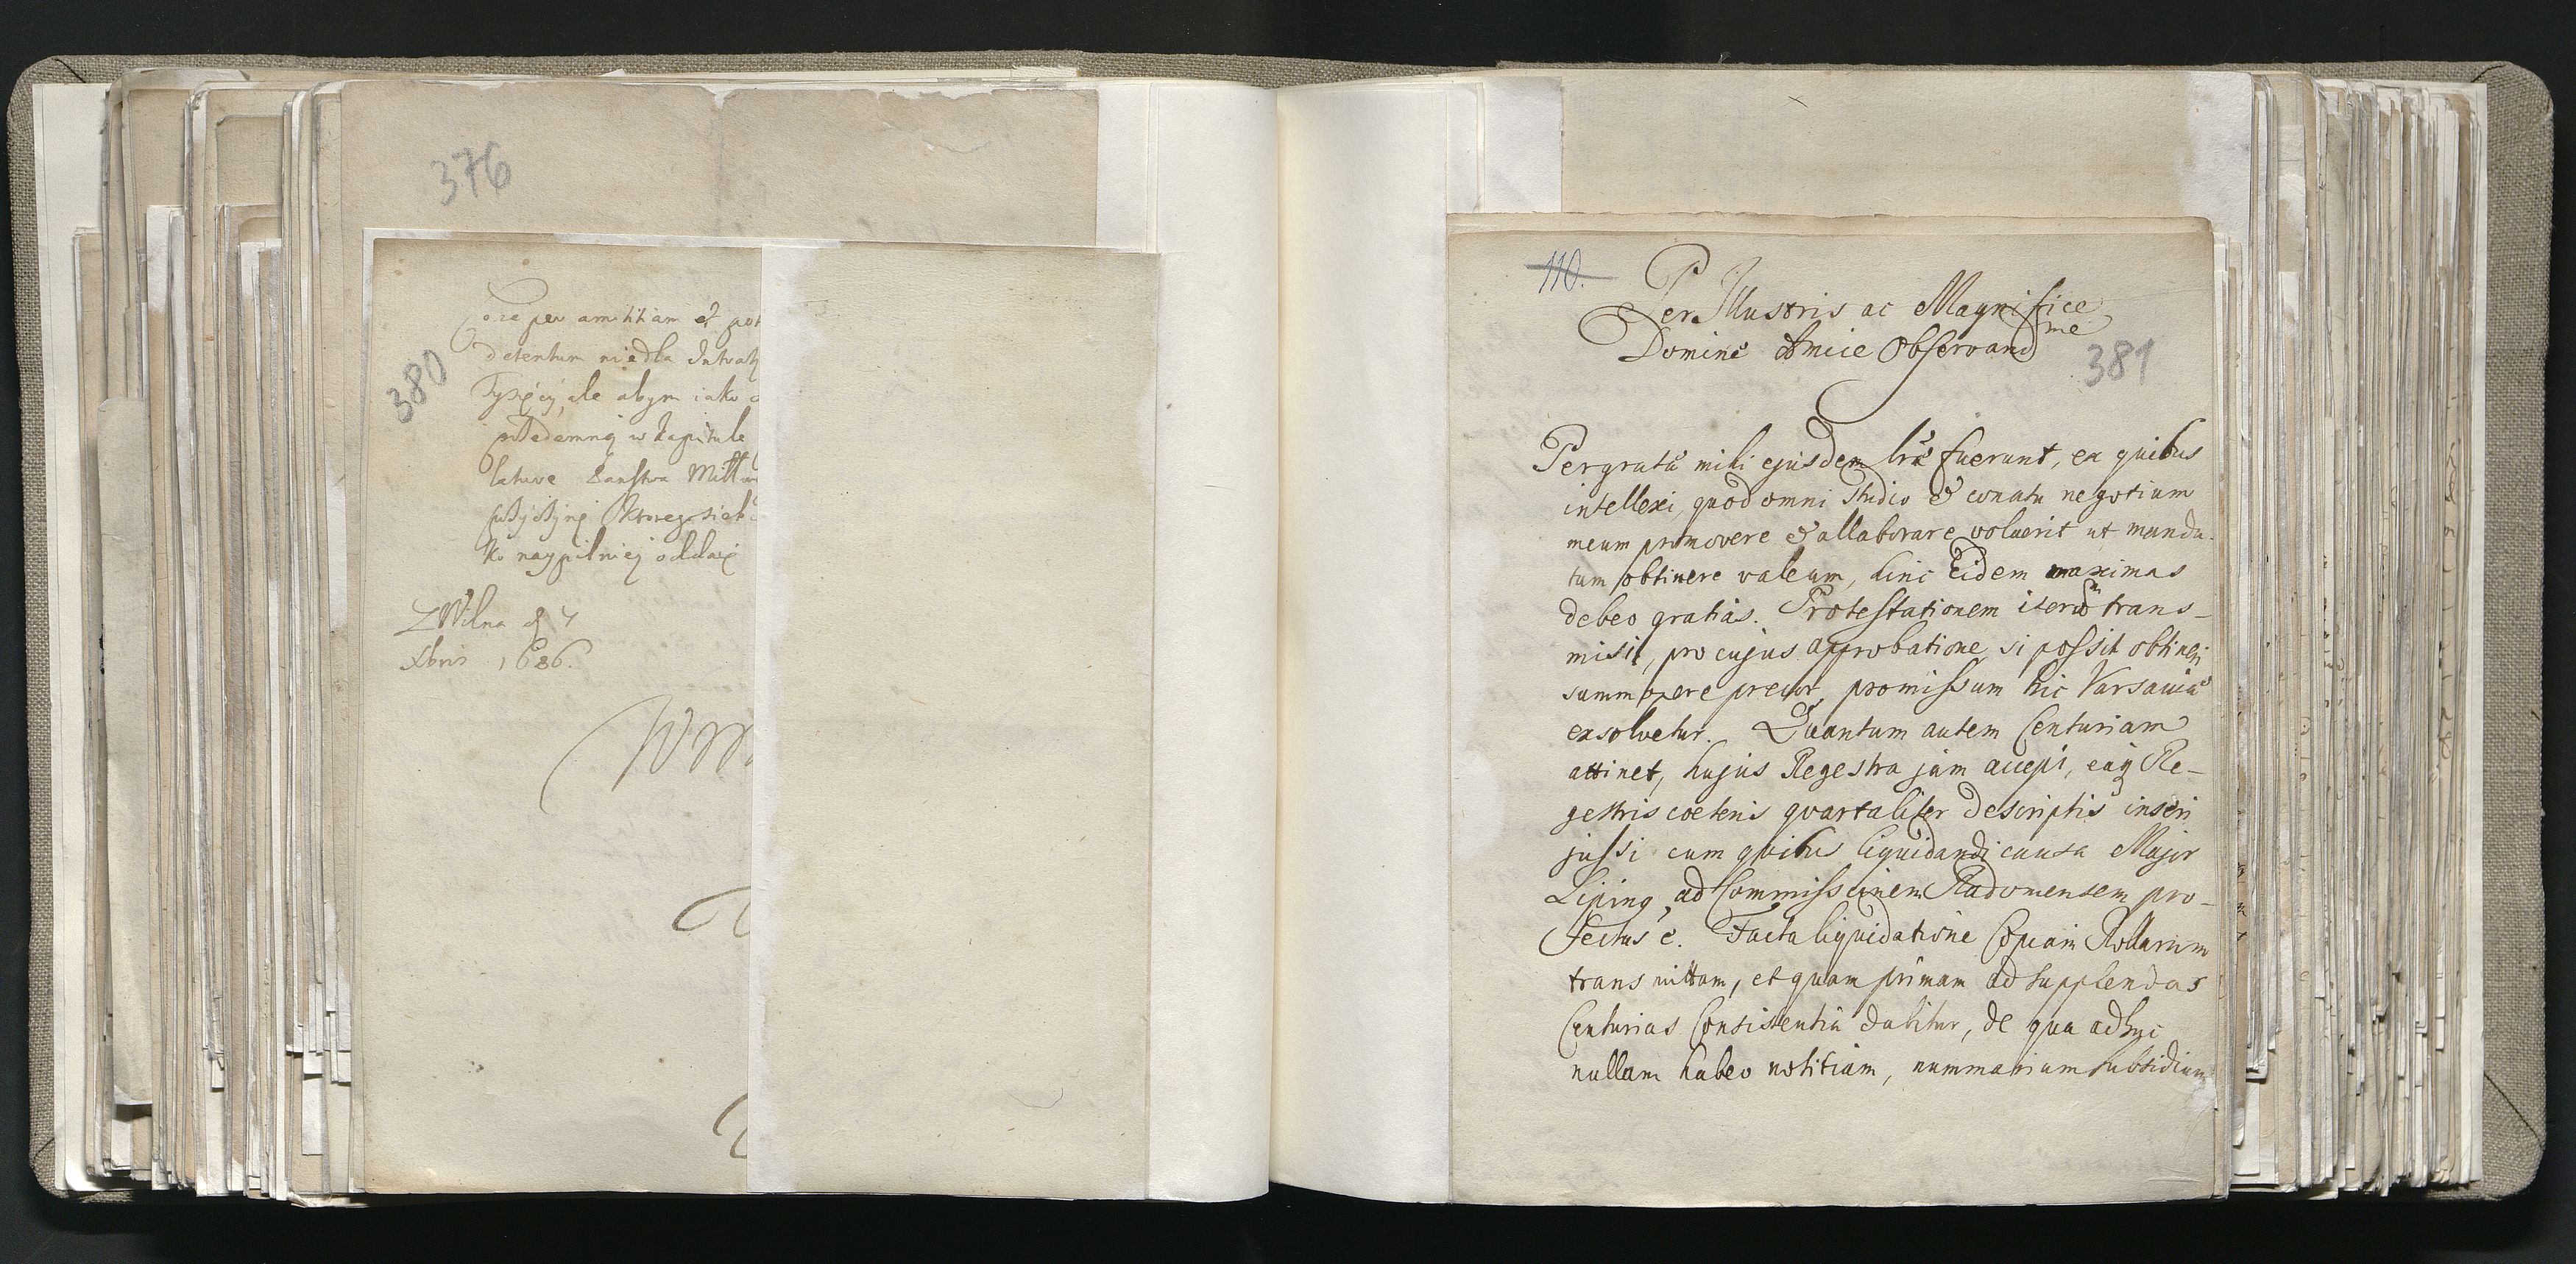 376
380
ore per amititiam et pot
detentum niedla Intraty
Tysięcy, ale abym iako
przedemną w kapitule
latwe Państwa Mill
ko naypilniej oddaię
Z Wilna d 4
Xbris 1686.
110.
Per Illustris ac Magnifice
Domine Amice Observand me
381
Pergratae mihi ejusdem lrae fuerunt, ex quibus
intellexi, quod omni studio & conatu negotium
meum promovere & allaborare voluerit ut manda-
tum obtinere valeam, hinc Eidem maximas
debeo gratias. Protestationem iterum trans-
misit, pro cujus approbatione, si possit obtineri
summopere precor, promissum hic Varsaviae
exsolvetur. Quantum autem Centuriam
attinet, hujus Regestra jam accepi, eaq Re-
gestris coeteris quartaliter descriptis inseri
jussi cum quibus liquidandi causa Major
Liping, ad Commissionem Radomensem pro-
fectus e. Facta liquidatione Copiam Rollarum
transmittam, et quam primam ad supplendas
Centurias Consistentia dabitur, de qua adhuc
nullam habeo notitiam, nummarium subsidium